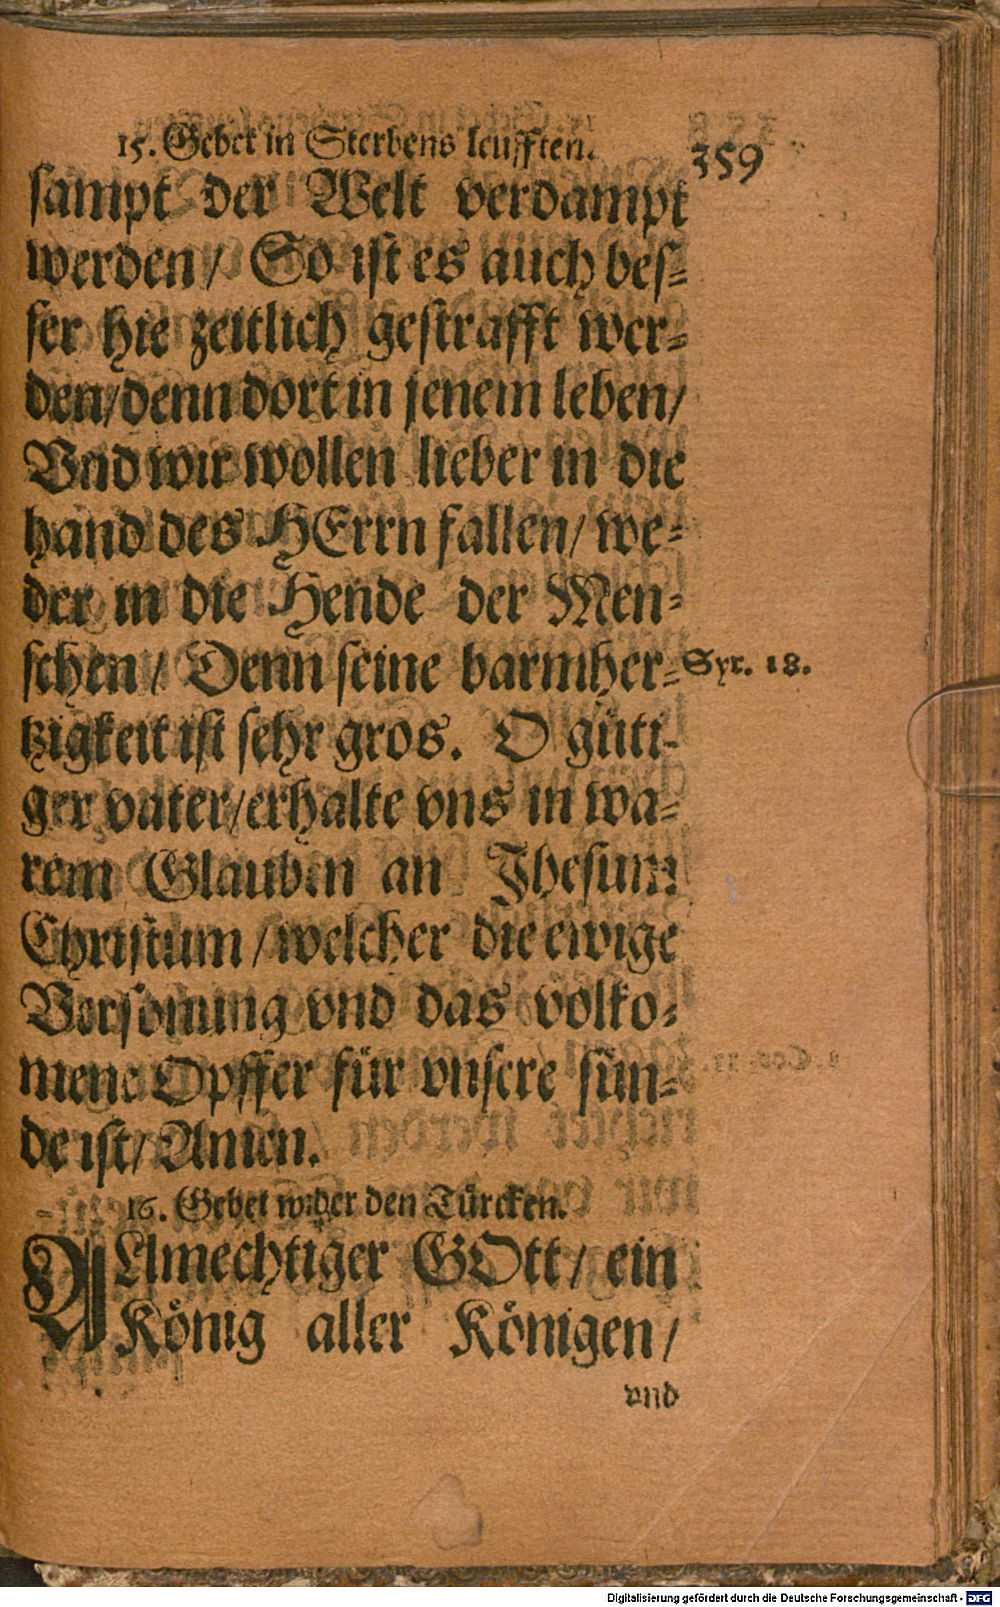 15. Gebet in Sterbens leufften. 359
sampt der Welt verdampt
werden/ So ist es auch bes-
ser hie zeitlich gestrafft wer-
den/denn dort in jenem leben/
Vnd wir wollen lieber in die
hand des HErrn fallen/ we-
der in die Hende der Men-
schen/ Denn seine barmher-
Syr. 18.
tzigkeit ist sehr gros. O güti-
ger vater/erhalte vns in wa-
rem Glauben an Jhesum
Christum/welcher die ewige
Versönung vnd das volko-
mene Opffer für vnsere sün-
de ist/ Amen.
16. Gebet wider den Türcken.
ALmechtiger GOtt/ ein
König aller Königen/
vnd
Digitalisierung gefördert durch die Deutsche Forschungsgemeinschaft - DFG